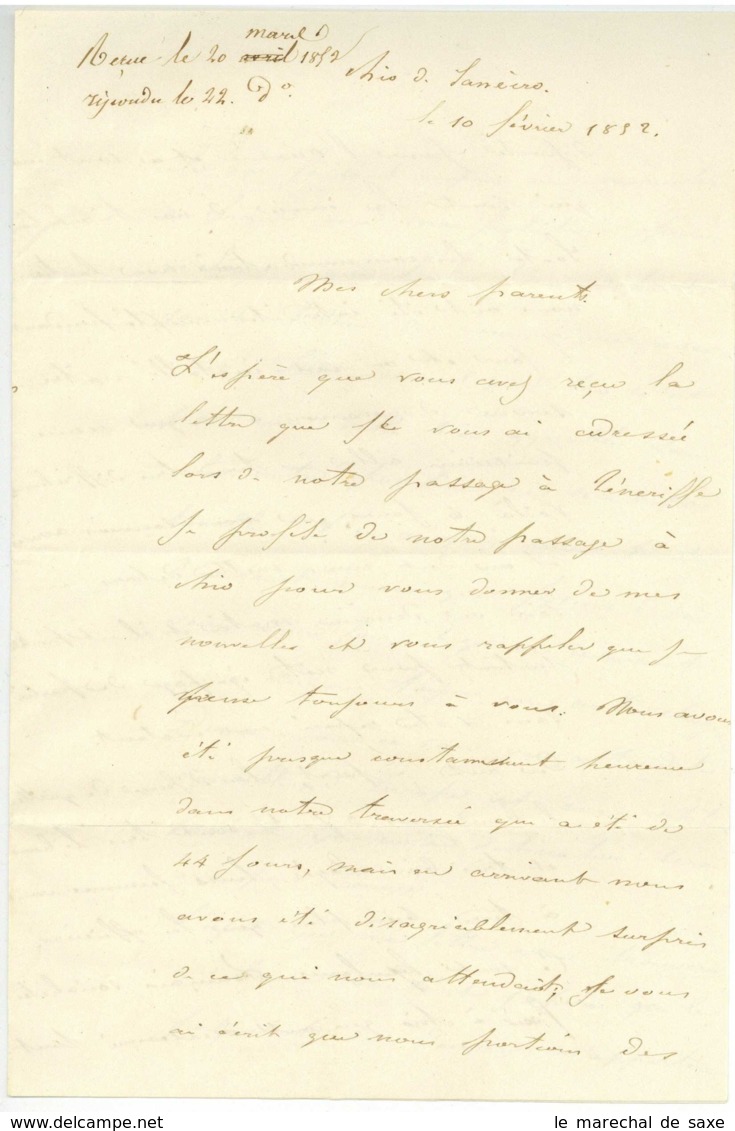 mars
Reçue le 20 avril 1852
répondu le 22. do.
Rio de Janéiro.
le 10 février 1852.
Mes chers parents.
J'espère que vous avez reçu la
lettre que je vous ai adressée
lors de notre passage à Ténériffe
Je profite de notre passage à
Rio pour vous donner de mes
nouvelles et vous rappeler que je
pense toujours à vous. Nous avons
été presque constamment heureux
dans notre traversée qui a été de
44 jours, mais en arrivant nous
avons été désagréablement surpris
de ce qui nous attendait; Je vous
ai écrit que nous portions des
le marechal de saxe